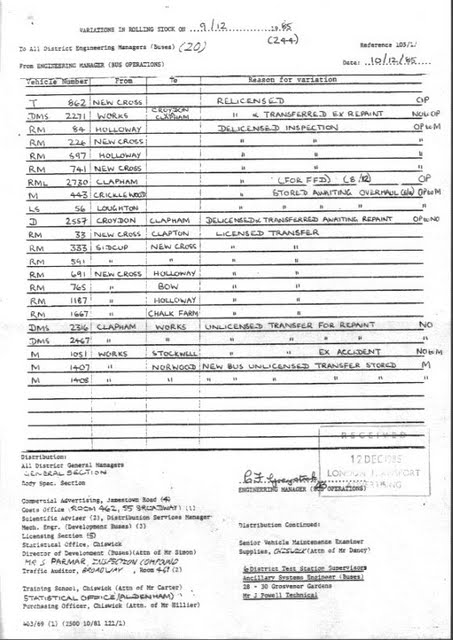 VARIATIONS IN ROLLING STOCK ON 9/12 1985
(244)
To All District Engineering Managers (Buses) (20) Reference 103/1/
From ENGINEERING MANAGER (BUS OPERATIONS) Date: 10/12/85
Vehicle Number From To Reason for variation
T 862 NEW CROSS RELICENSED OP
DMS 2271 WORKS CROYDON CLAPHAM " & TRANSFERRED EX REPAINT NO to OP
RM 84 HOLLOWAY DELICENSED INSPECTION OP to M
RM 224 NEW CROSS " " "
RM 597 HOLLOWAY " " "
RM 741 NEW CROSS " " "
RML 2730 CLAPHAM " (FOR FFD) (8/12) OP
M 443 CRICKLEWOOD " STORED AWAITING OVERHAUL OP to M
LS 56 LOUGHTON " " " " "
D 2557 CROYDON CLAPHAM DELICENSED & TRANSFERRED AWAITING REPAINT OP to NO
RM 33 NEW CROSS CLAPTON LICENSED TRANSFER
RM 333 SIDCUP NEW CROSS " "
RM 541 " " " "
RM 691 NEW CROSS HOLLOWAY " "
RM 765 " BOW " "
RM 1187 " HOLLOWAY " "
RM 1667 " CHALK FARM " "
DMS 2316 CLAPHAM WORKS UNLICENSED TRANSFER FOR REPAINT NO
DMS 2467 " " " " " "
M 1051 WORKS STOCKWELL " " EX ACCIDENT NO to M
M 1407 " NORWOOD NEW BUS UNLICENSED TRANSFER STORED M
M 1408 " " " " " " " "
Distribution:
All District General Managers
GENERAL SECTION
Body Spec. Section
RECEIVED
12 DEC 1985
LONDON TRANSPORT
ENGINEERING MANAGER (BUS OPERATIONS)
Commercial Advertising, Jamestown Road (4)
Costs Office (ROOM 462, 55 BROADWAY) (1)
Scientific Adviser (2), Distribution Services Manager
Mech. Engr. (Development Buses) (3)
Licensing Section (5)
Statistical Office, Chiswick
Director of Development (Buses)(Attn of Mr Simon)
MR S PARMAR, INSPECTION COMPOUND
Traffic Auditor, BROADWAY, Room 468 (2)
Training School, Chiswick (Attn of Mr Carter)
STATISTICAL OFFICE (ALDENHAM)
Purchasing Officer, Chiswick (Attn of Mr Hillier)
Distribution Continued:
Senior Vehicle Maintenance Examiner
Supplies, CHISWICK (Attn of Mr Dancy)
6 District Test Station Supervisors
Ancillary Systems Engineer (Buses)
28 - 30 Grosvenor Gardens
Mr J Powell Technical
403/69 (1) (2500 10/81 121/1)